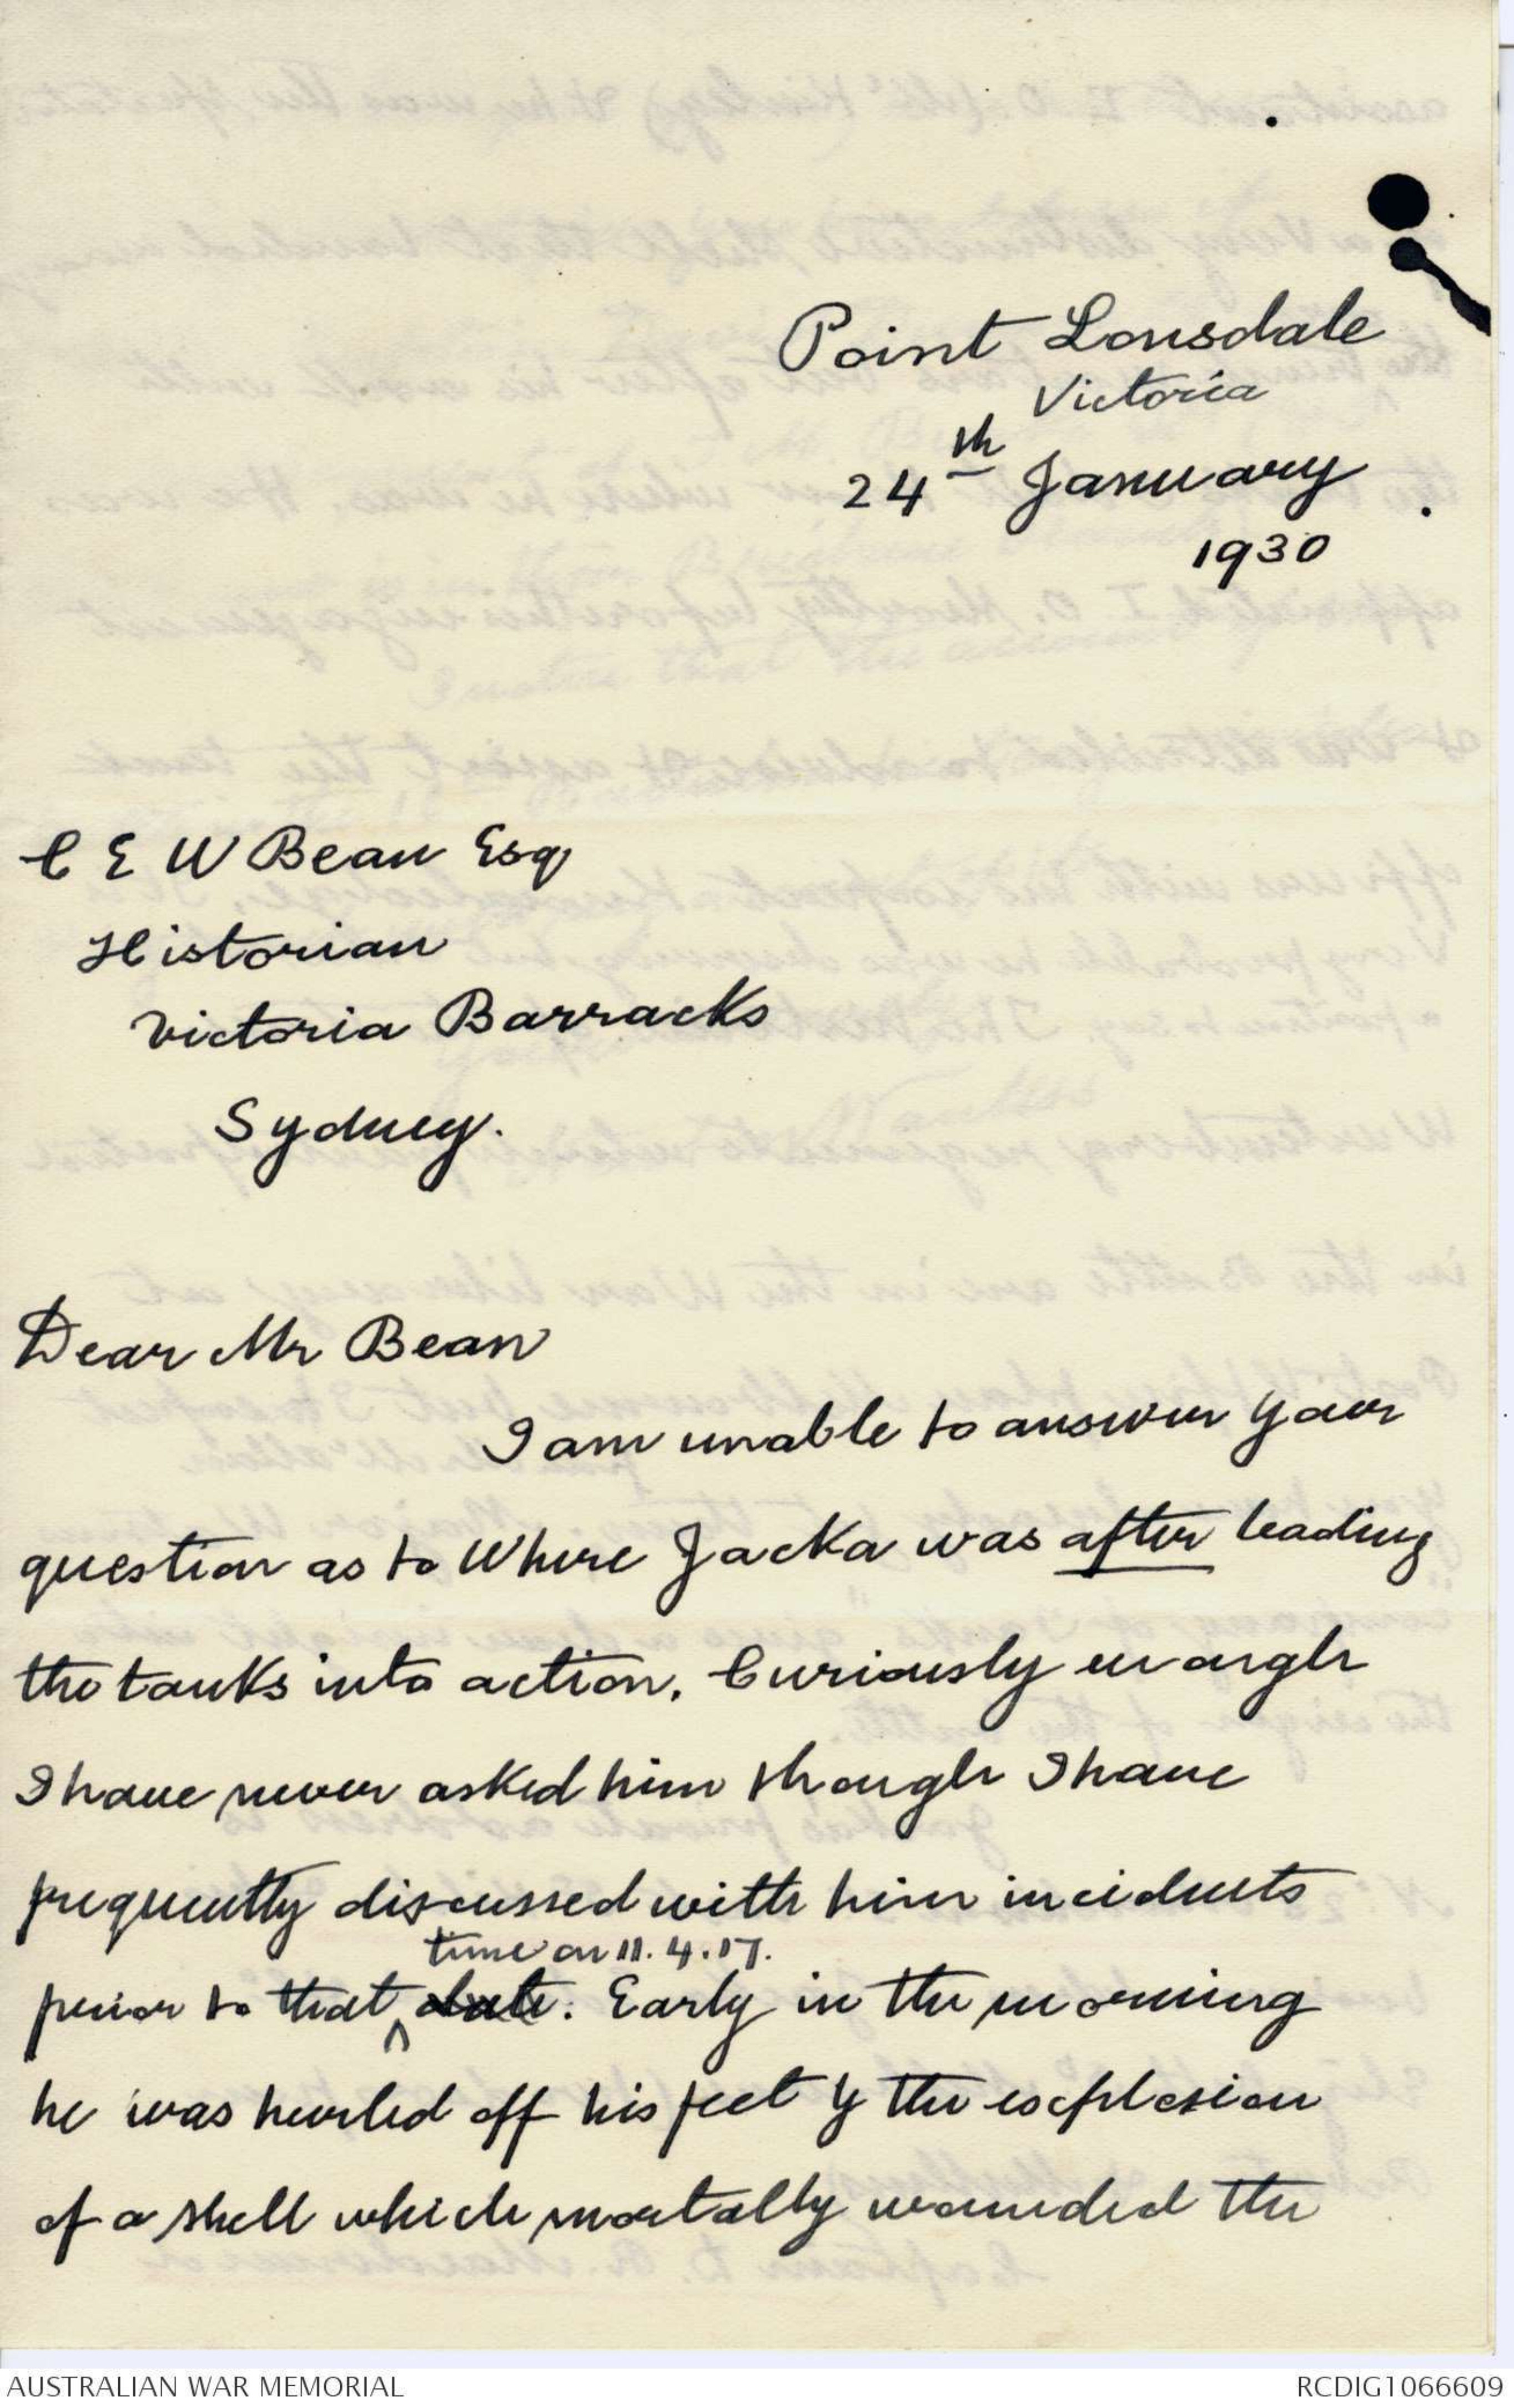 Point Lonsdale
Victoria
24th January
1930
C E W Bean Esq
Historian
Victoria Barracks
Sydney.
Dear Mr Bean
I am unable to answer your
question as to where Jacka was after leading
the tanks into action. Curiously enough
I have never asked him though I have
frequently discussed with him incidents
time on 11.4.17.
prior to that date. Early in the morning
he was hurled off his feet by the explosion
of a shell which mortally wounded the
AUSTRALIAN WAR MEMORIAL
RCDIG1066609